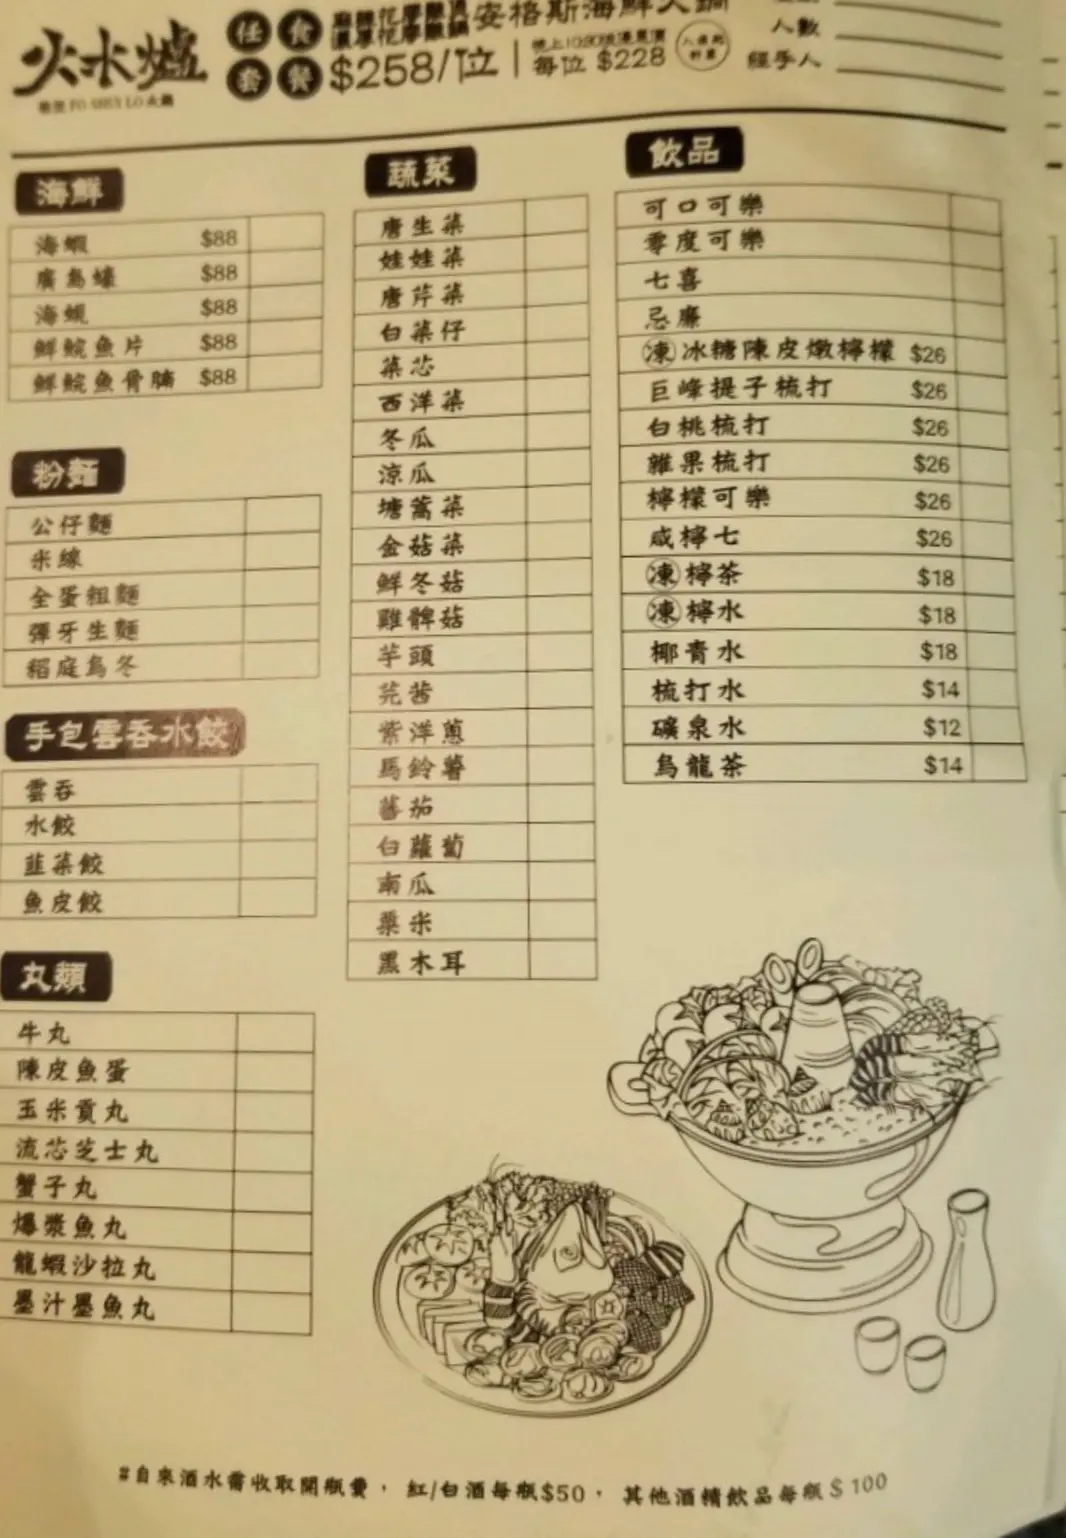 火水爐
FO SHUI LO 火鍋
任食套餐
安格斯海鮮火鍋
$258/位
每位 $228
人數
經手人
海鮮
海蝦 $88
廣島蠔 $88
海蜆 $88
鮮鯇魚片 $88
鮮鯇魚骨腩 $88
粉麵
公仔麵
米線
全蛋粗麵
彈牙生麵
稻庭烏冬
手包雲吞水餃
雲吞
水餃
韮菜餃
魚皮餃
丸類
牛丸
陳皮魚蛋
玉米貢丸
流芯芝士丸
蟹子丸
爆漿魚丸
龍蝦沙拉丸
墨汁墨魚丸
蔬菜
唐生菜
娃娃菜
唐芹菜
白菜仔
菜芯
西洋菜
冬瓜
涼瓜
塘蒿菜
金菇菜
鮮冬菇
雞髀菇
芋頭
芫茜
紫洋蔥
馬鈴薯
蕃茄
白蘿蔔
南瓜
粟米
黑木耳
飲品
可口可樂
零度可樂
七喜
忌廉
凍冰糖陳皮燉檸檬 $26
巨峰提子梳打 $26
白桃梳打 $26
雜果梳打 $26
檸檬可樂 $26
咸檸七 $26
凍檸茶 $18
凍檸水 $18
椰青水 $18
梳打水 $14
礦泉水 $12
烏龍茶 $14
#自來酒水需收取開瓶費，紅/白酒每瓶$50，其他酒精飲品每瓶$100